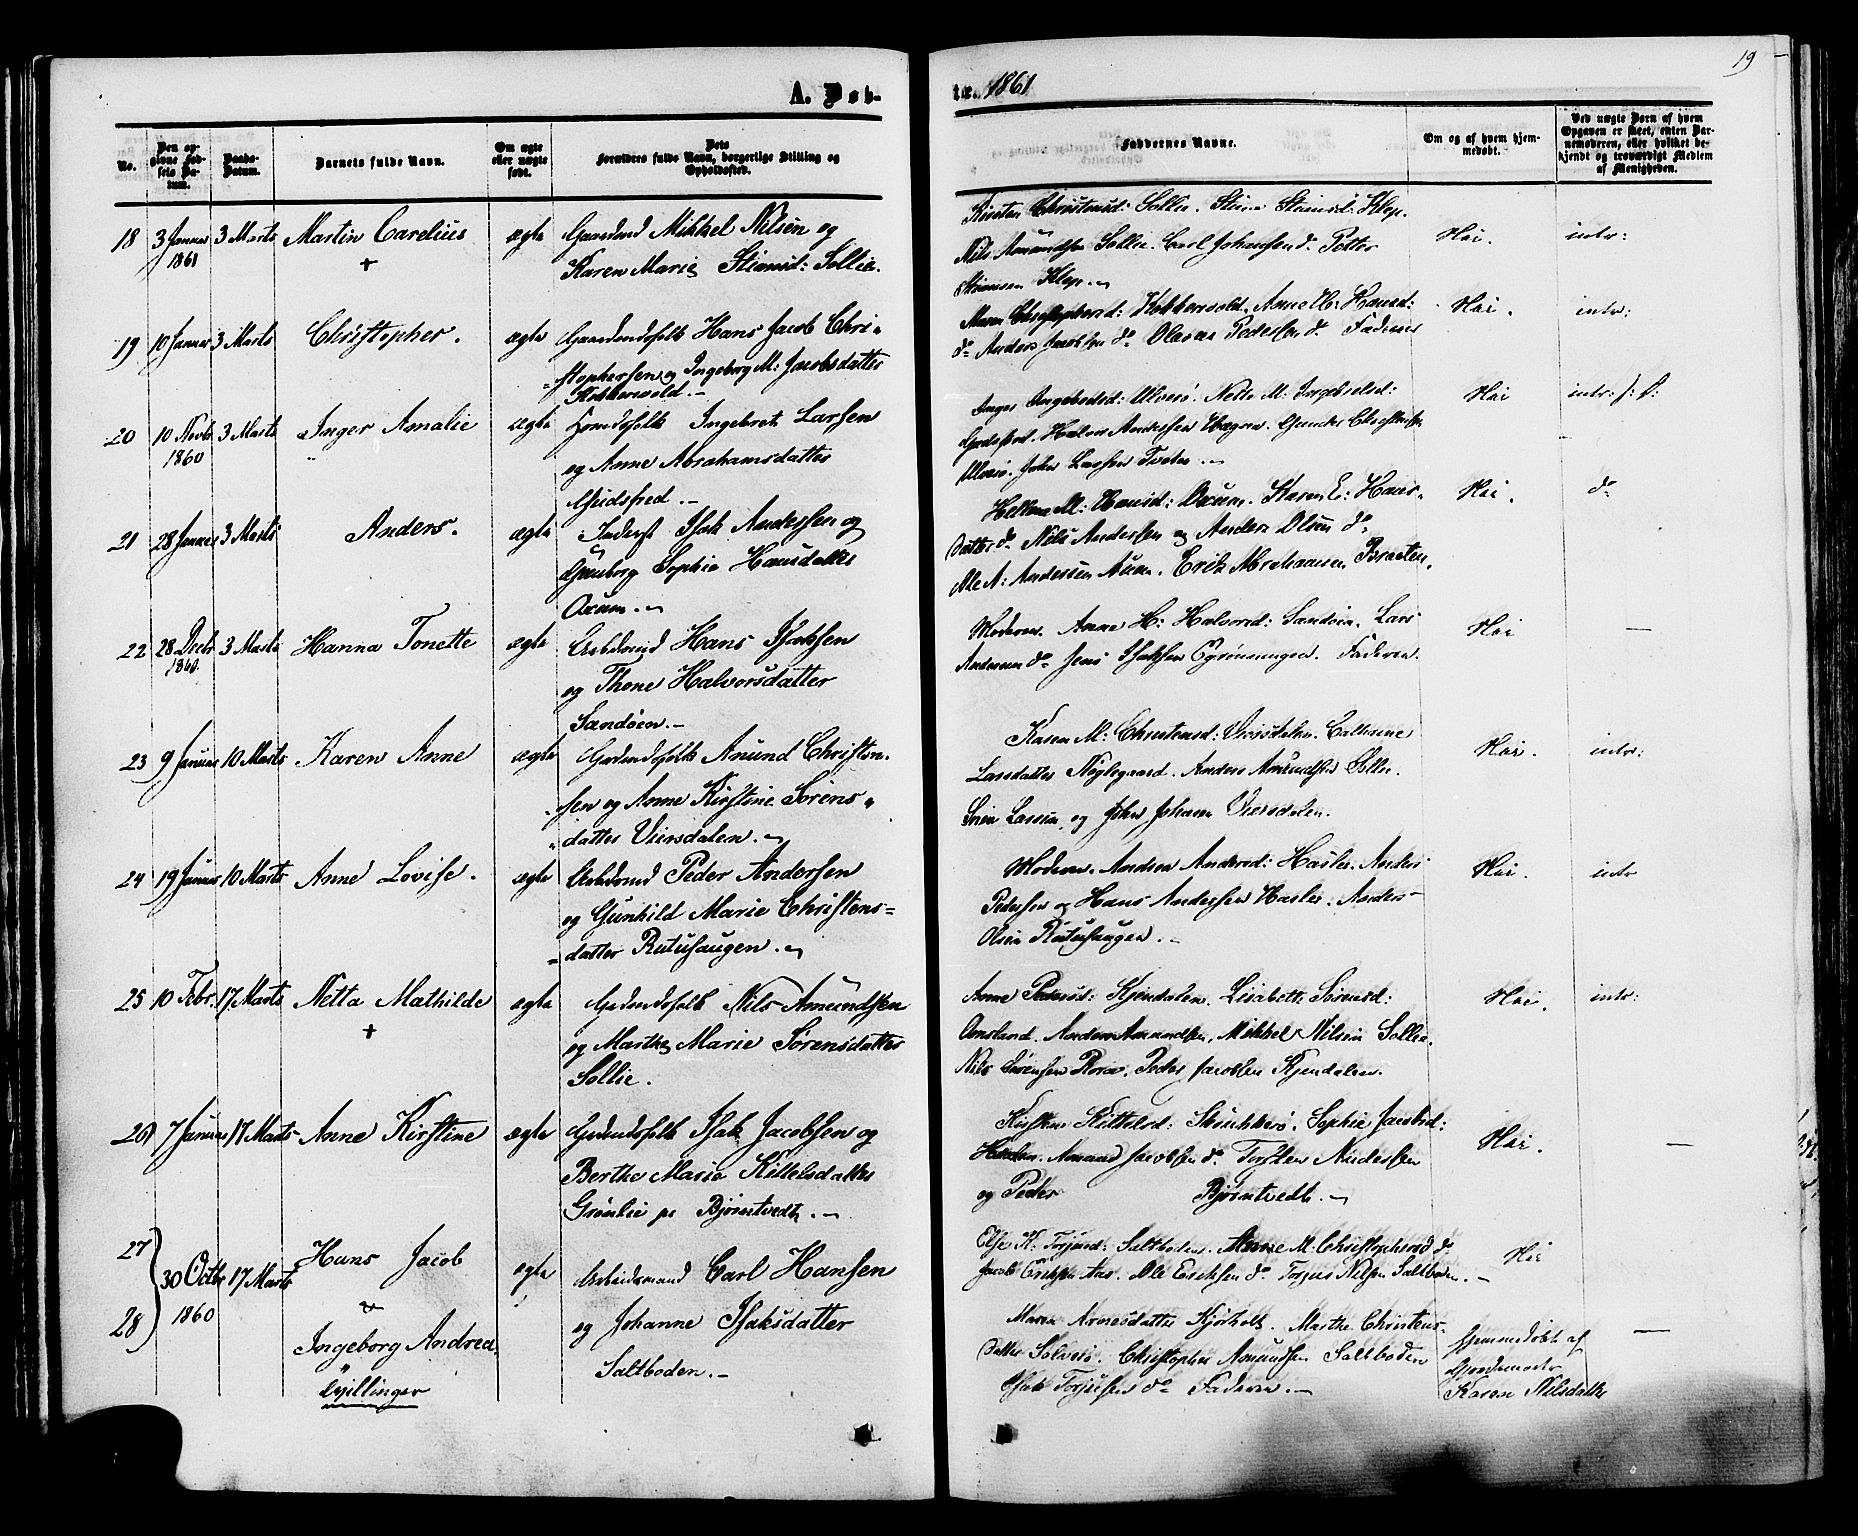 19
A. Døb-
te. 1861
No.
Den opgivne Fødsels Datum.
Daabs-Datum.
Barnets fulde Navn.
Om ægte eller uægte født.
Dets Forældres fulde Navn, borgerlige Stilling og Opholdssted.
Faddernes Navne.
Om og af hvem hjemmedøbt.
Ved uægte Børn af hvem Opgaven er skeet, enten Barnemoderen, eller hvilket bekjendt og troværdigt Medlem af Menigheden.
18 3 Januar 1861 3 Marts Martin Carelius + ægte
Gaardmd Mikkel Nilsen og
Karen Marie Stiansd: Sollie.
Kirsten Christensd: Sollie. Stine Stiansd: Klep.
Nils Amundsen Sollie. Carl Johansen do Petter
Stiansen Klep.
Nei. intr:
19 10 Januar 3 Marts Christopher. ægte
Gaardmdsfolk Hans Jacob Chri-
stophersen og Ingeborg M: Jacobsdatter
Kokkersvold.
Maren Christophersd: Kokkersvold. Anne H: Hansd:
do Anders Jacobsen do Olavus Pedersen do Faderen
Nei. intr:
20 10 Novbr 1860 3 Marts Inger Amalie ægte
Ingebret Larsen
og Anne Abrahamsdatter
Gudsfred.
Inger Ingebretsd: Ulverø. Nelle M: Ingebretsd:
Gudsfred. Halvor Andersen Gunder Christensen
Ulverø. John Larsen Tveten.
Nei intr:
21 28 Januar 3 Marts Anders. ægte
Inderst Isak Andersen og
Gunborg Sophie Hansdatter
Oxum.
Hellene M: Hansd: Oxum. Karen E: Hans-
datter do Nils Andersen og Anders Olsen do
Ole A: Andersen Erik Abrahamsen Braaten.
Nei. do
22 28 Decbr 1860. 3 Marts Hanna Tonette ægte
Arbdsmd Hans Isaksen
og Thone Halvorsdatter
Sandøen.
Moderen. Anne H: Halvorsd: Sandøen. Lars
Andersen do Jens Isaksen Faderen.
Nei —
23 9 Januar 10 Marts Karen Anne ægte
Gdmdsfolk Anund Christen-
sen og Anne Kirstine Sørens-
datter Viersdalen.
Karen M: Christensd: Viersdalen. Cathrine
Larsdatter Nøglegaard. Anders Amundsen Sollie.
Sørin Larsen og John Johans Viersdalen.
Nei. intr:
24 19 Januar 10 Marts Anne Lovise. ægte
Arbdsmd Peder Andersen
og Gunhild Marie Christens-
datter Rutuhaugen.
Moderen. Andrea Andersd: Hasler. Anders
Pedersen og Hans Andersen Hasler. Anders
Olsen Rutuhaugen.
Nei. intr
25 10 Febr. 17 Marts Netta Mathilde + ægte
Gdmdsfolk Nils Amundsen
og Marthe Marie Sørensdatter
Sollie.
Anne Pedersd: Kjendalen. Lisabeth Sørensd:
Omsland. Anders Amundsen, Mikkel Nilsen Sollie.
Nils Sørensen Peder Jacobsen Kjendalen.
Nei. intr:
26 7 Januar 17 Marts Anne Kirstine ægte
Gdmdsfolk Isak Jacobsen og
Berthe Marie Kittelsdatter
Grønlie pr Bjørntvedt.
Kirsten Kittelsd: Sophie Jacobsd:
Amund Jacobsen do Torsten Andersen
og Peder Bjørntvedt.
Nei. —
27
28 30 Octbr 1860 17 Marts
Hans Jacob
&
Ingeborg Andrea.
"
tvillinger
ægte
Arbeidsmand Carl Hansen
og Johanne Isaksdatter
Saltboden.
Else K: Torjusd: Saltboden. Anne M: Christophersd do
Jacob Eriksen Aas. Ole Eriksen do Torjus Nilsen Saltboden.
Maren Arnesdatter Kjørholt. Marthe Christens-
datter Solverø. Christopher Amundsen Saltboden
Isak Torjusen do Faderen.
Nei
Hjemmedøbt af
Gjordemoder
Karen Nilsdatter
—